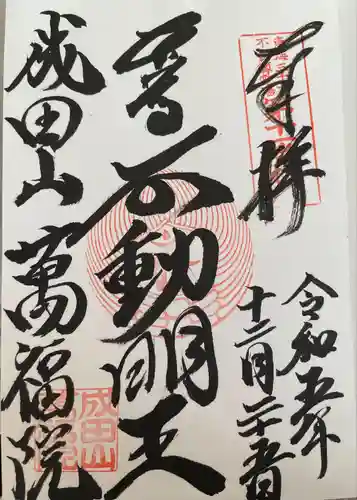 奉拝
令和五年
十二月二十五日
不動明王
成田山萬福院
成田山
萬福院